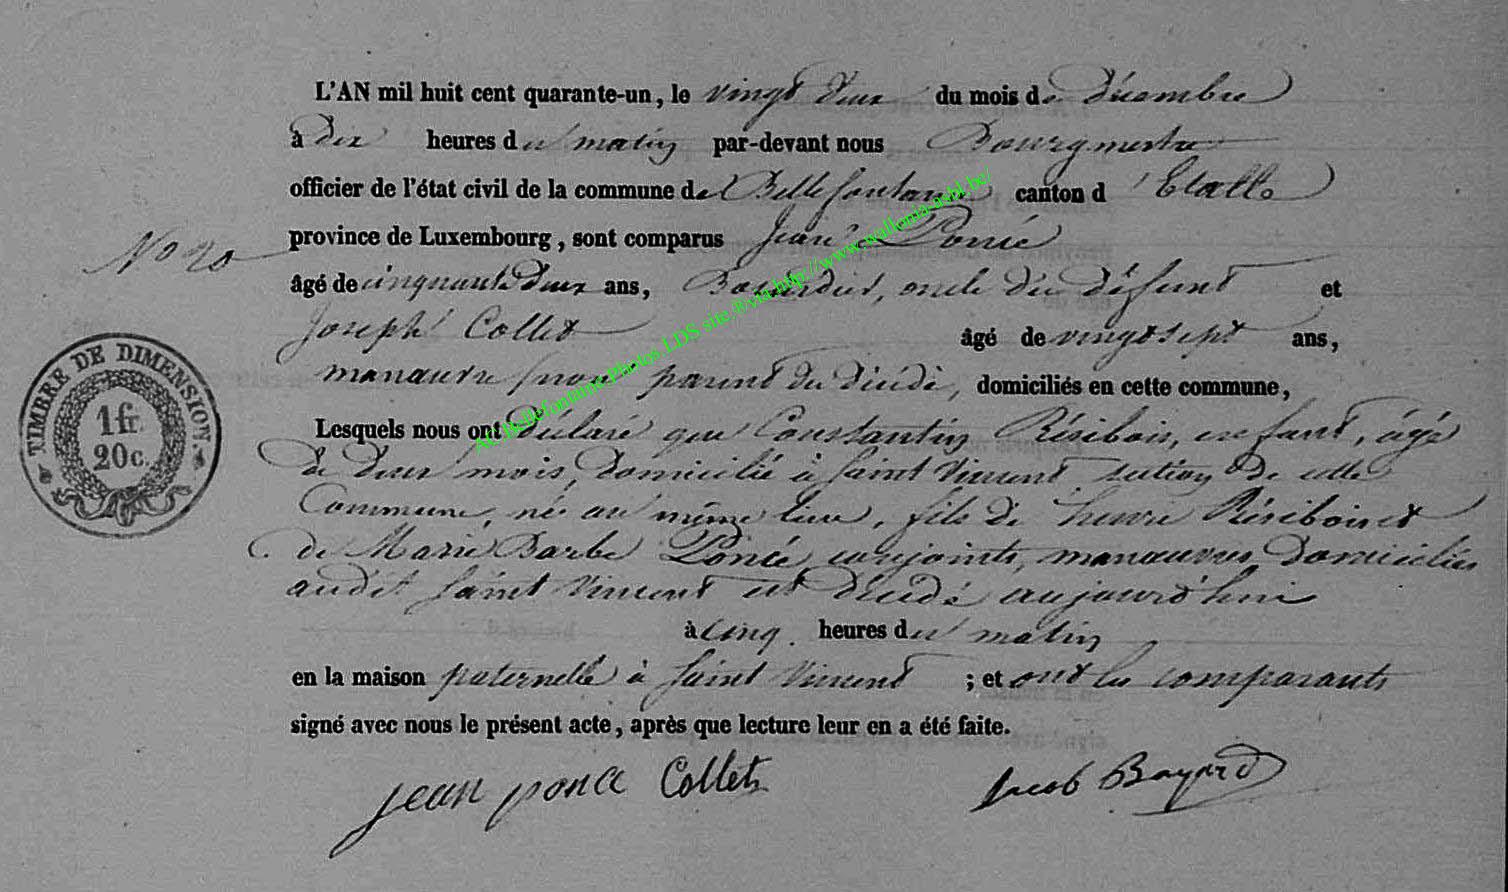 L'AN mil huit cent quarante-un, le vingt deux du mois de Décembre
à dix heures du matin par-devant nous Bourgmestre
officier de l'état civil de la commune de Bellefontaine canton d'Etalle
province de Luxembourg, sont comparus Jean Poncé
N° 20
âgé de cinquante Deux ans, oncle du défunt et
Joseph Collet âgé de vingt sept ans,
manœuvre parent du décédé, domiciliés en cette commune,
Lesquels nous ont Déclaré que Constantin Résibois, enfant, âgé
de deux mois, domicilié à Saint Vincent section de cette
Commune, né au même lieu, fils de henri Résibois et
de Marie Barbe Poncé conjoints, manœuvres Domiciliés
audit Saint Vincent est décédé aujourd'hui
à cinq heures du matin
en la maison paternelle à Saint Vincent ; et ont les comparants
signé avec nous le présent acte, après que lecture leur en a été faite.
jean ponce Collet Jacob Bayard
TIMBRE DE DIMENSION.
1 fr.
20 c.
Bellefontaine.Photos LDS site ® via http://www.wallonia-asbl.be/